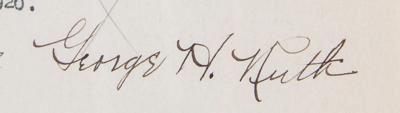 920.
George H. Ruth